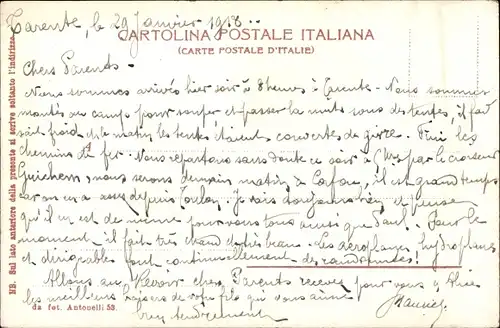 Tarente, le 29 Janvier 1918..
CARTOLINA POSTALE ITALIANA
(CARTE POSTALE D'ITALIE)
Chers Parents -
Nous sommes arrivés hier soir à 8 heures à Tarente - Nous sommes
montés au camp pour souper et passer la nuit sous des tentes, il fai
sait froid, le matin les tentes étaient couvertes de givre. - Fini les
chemins de fer - Nous repartons sans doute ce soir à par le croiseur
Guichen, nous serons demain matin à Corfou, il est grand temps
car on en a assez depuis Toulon. Je vais toujours très et pense
qu'il en est de même pour vous tous ainsi que Paul. Pour le
moment il fait très chaud et très beau - les aéroplanes, hydroplanes
et dirigeables font continuellement des randonnées!
Allons au Revoir chers Parents recevez pour vous y
les meilleurs baisers de votre fils qui vous aime
bien tendrement
NB. Sul lato anteriore della presente si scrive soltanto l'indirizzo.
da fot. Antonelli 53.